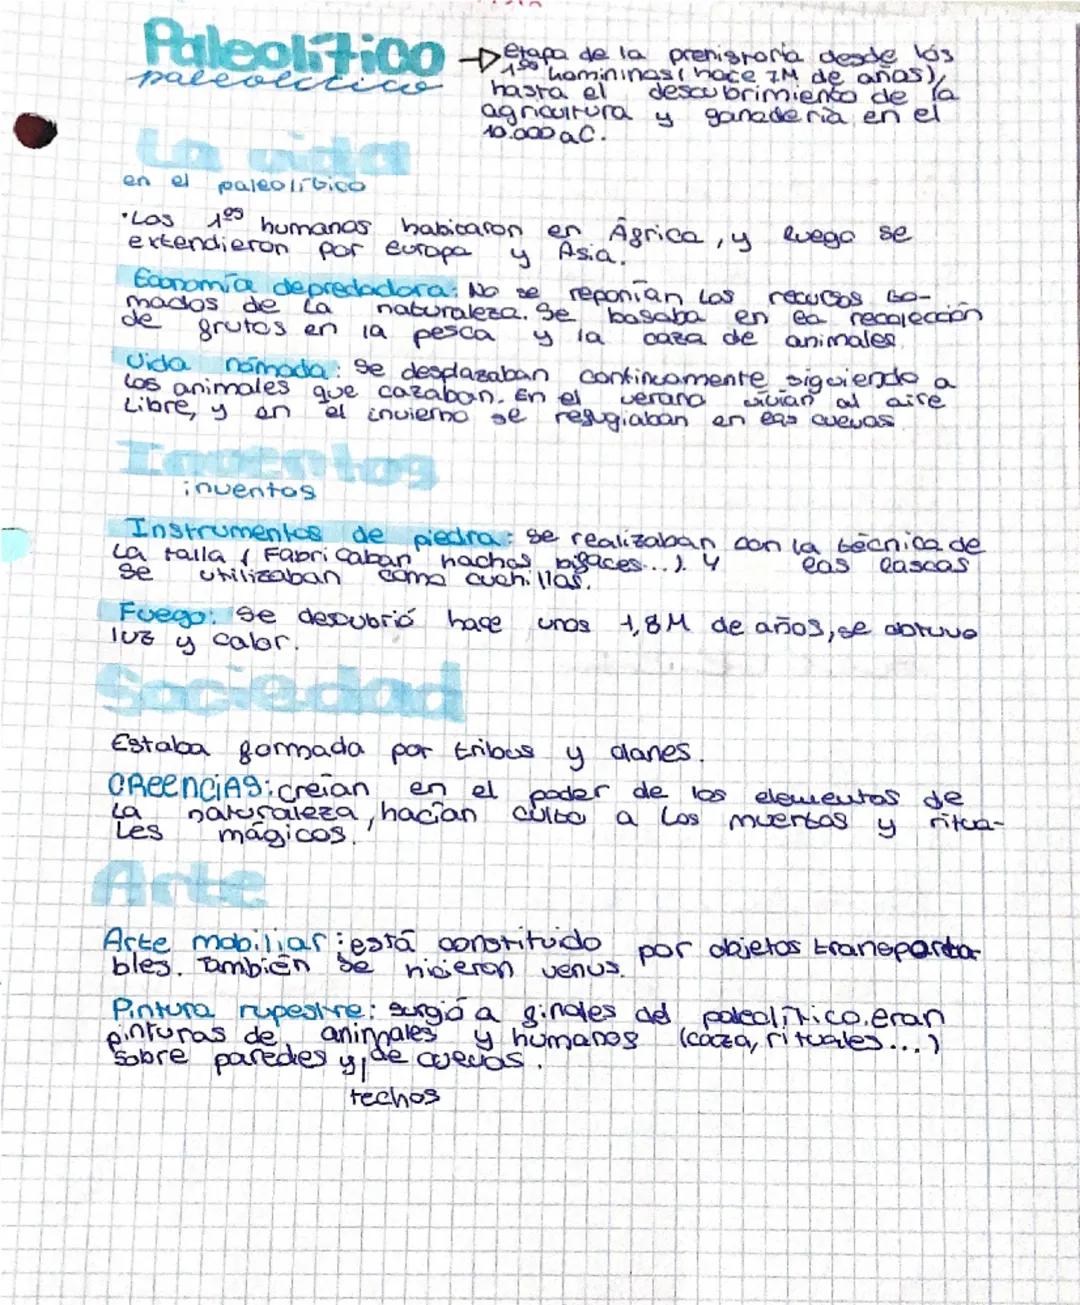 Paleolítico
paleolítico
→ Etapa de la prehistoria desde los
1ºs homininos (hace 7M de años),
hasta el descubrimiento de la
agricultura y ganadería en el
10.000 a.C.
La vida
en el paleolítico
·Los 1ºs humanos habitaron en África, y luego se
extendieron por europa y Asia.
Economía depredadora: No se reponían los recursos to-
mados de la naturaleza. Se basaba en la recolección
de frutos en la pesca y la caza de animales
Vida nómada: Se desplazaban continuamente siguiendo a
los animales que cazaban. En el verano vivían al aire
Libre, y en el invierno se refugiaban en las cuevas
Inventos
inventos
Instrumentos de piedra: Se realizaban con la técnica de
La talla (Fabricaban hachas bifaces...). Y las lascas
se utilizaban como cuchillos.
Fuego: Se descubrió hace unos 1,8M de años, se obtuvo
luz y calor.
Sociedad
Estaba formada por tribus y clanes.
CREENCIAS: creían en el poder de los elementos de
La naturaleza, hacían culto a los muertos y ritua-
Les mágicos.
Arte
Arte mobiliar: está constituido por objetos transporta-
bles. También se hicieron venus.
Pintura rupestre: surgió a finales del paleolítico. eran
pinturas de animales y humanos (caza, rituales...)
sobre paredes y de cuevas.
techos